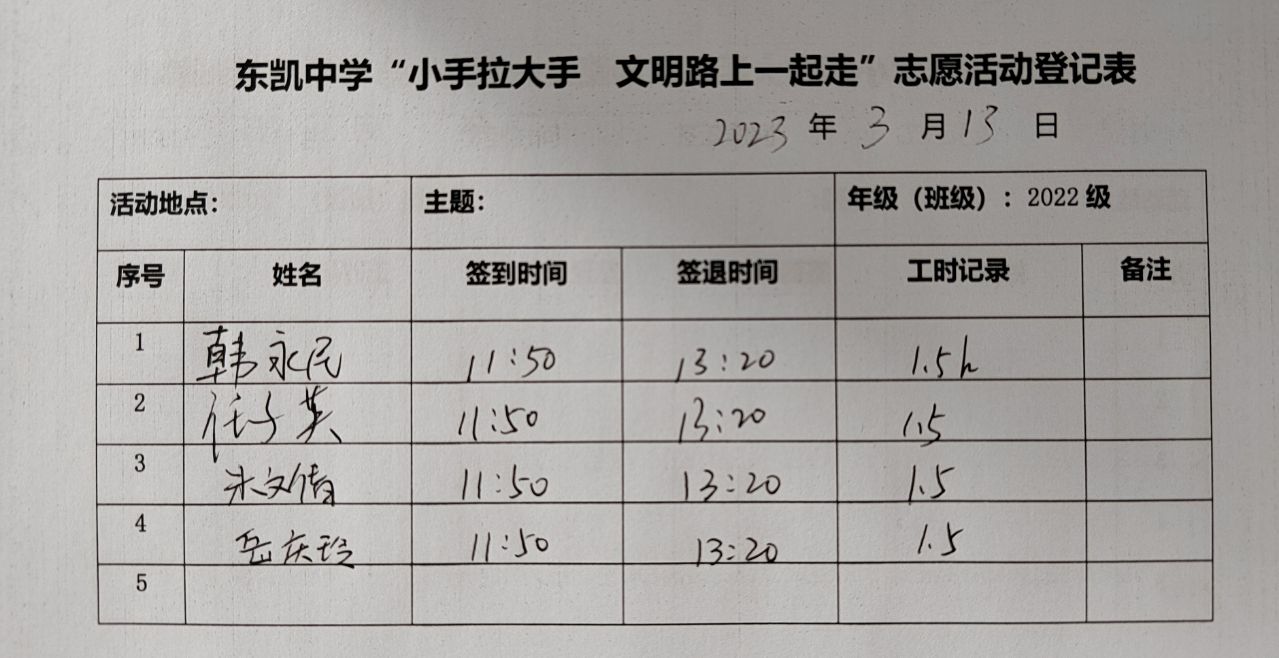 东凯中学“小手拉大手 文明路上一起走”志愿活动登记表
2023 年 3 月 13 日
活动地点： 主题： 年级（班级）：2022 级
序号 姓名 签到时间 签退时间 工时记录 备注
1 韩永民 11:50 13:20 1.5h
2 任子英 11:50 13:20 1.5
3 朱文倩 11:50 13:20 1.5
4 岳庆玲 11:50 13:20 1.5
5